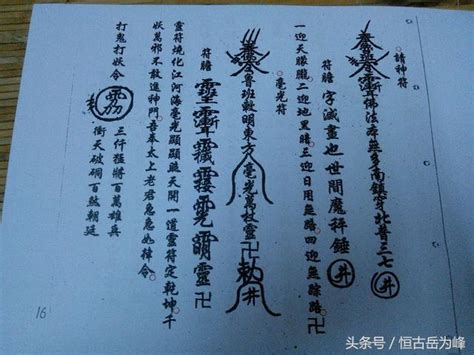 請神符
佛法本無多南鎮穿北普三七井
符膽 字滅畫也世間魔秤錘井
一迎天朦朧。二迎地黑暗。三迎日月無路。四迎無踪路。卍
毫光符
魯班敕明東方毫光萬枝靈卍敕井
符膽
靈
靈符燒化江河海毫光顯顯照天開一道靈符定乾坤千
妖萬邪不敢進神門。吾奉太上老君急急如律令。
打鬼打妖令
三仟猛將百萬雄兵
衝天破洞百煞朝廷
16
头条号／恒古岳为峰